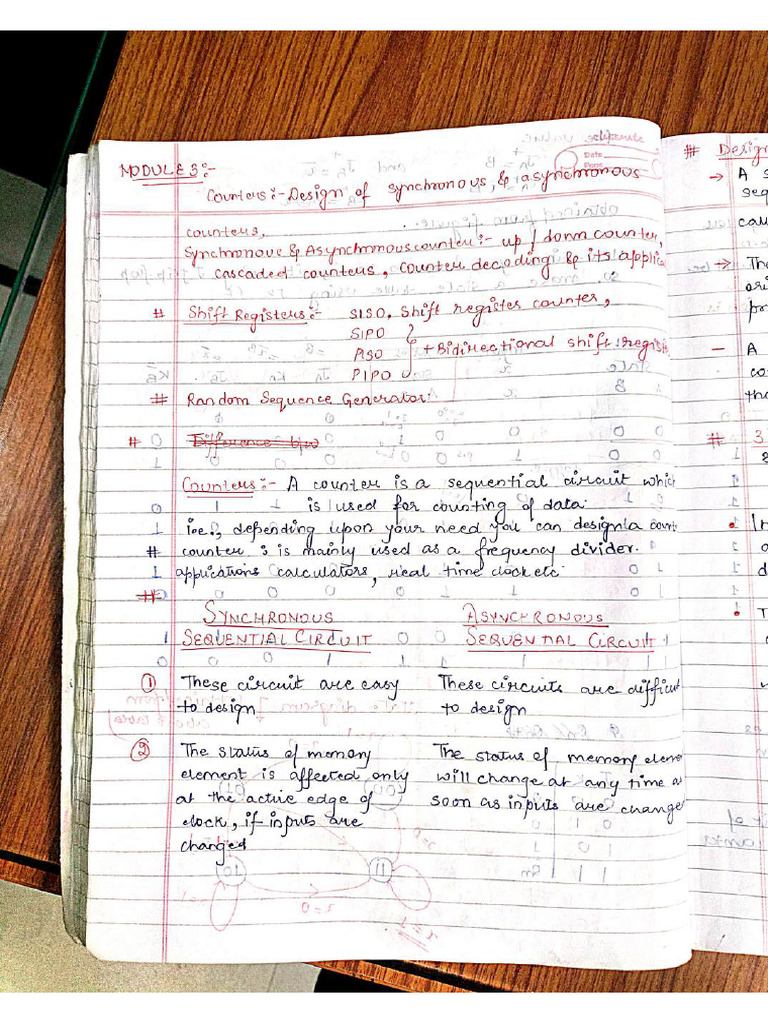 classmate
Date
Page
MODULE 3:-
Counters:- Design of synchronous & asynchronous
counters,
Synchronous & Asynchronous counter:- up / down counter,
cascaded counters, counter decoding & its applic
# Shift Registers:- SISO, Shift register counter,
SIPO
PISO } + Bidirectional shift regist
PIPO
# Random Sequence Generator:
# Difference b/w
Counters:- A counter is a sequential circuit which
is used for counting of data.
i.e., depending upon your need you can design a count
# counter : is mainly used as a frequency divider.
applications calculators, real time clock etc.
#
SYNCHRONOUS ASYNCHRONOUS
SEQUENTIAL CIRCUIT SEQUENTIAL CIRCUIT
① These circuit are easy These circuits are difficult
to design to design
② The status of memory The status of memory eleme
element is affected only will change at any time as
at the active edge of soon as inputs are changed
clock, if inputs are
changed
# Design
→ A s
seq
cou
→ The
ori
po
- A
co
tha
# 3
• In
a
d
• T